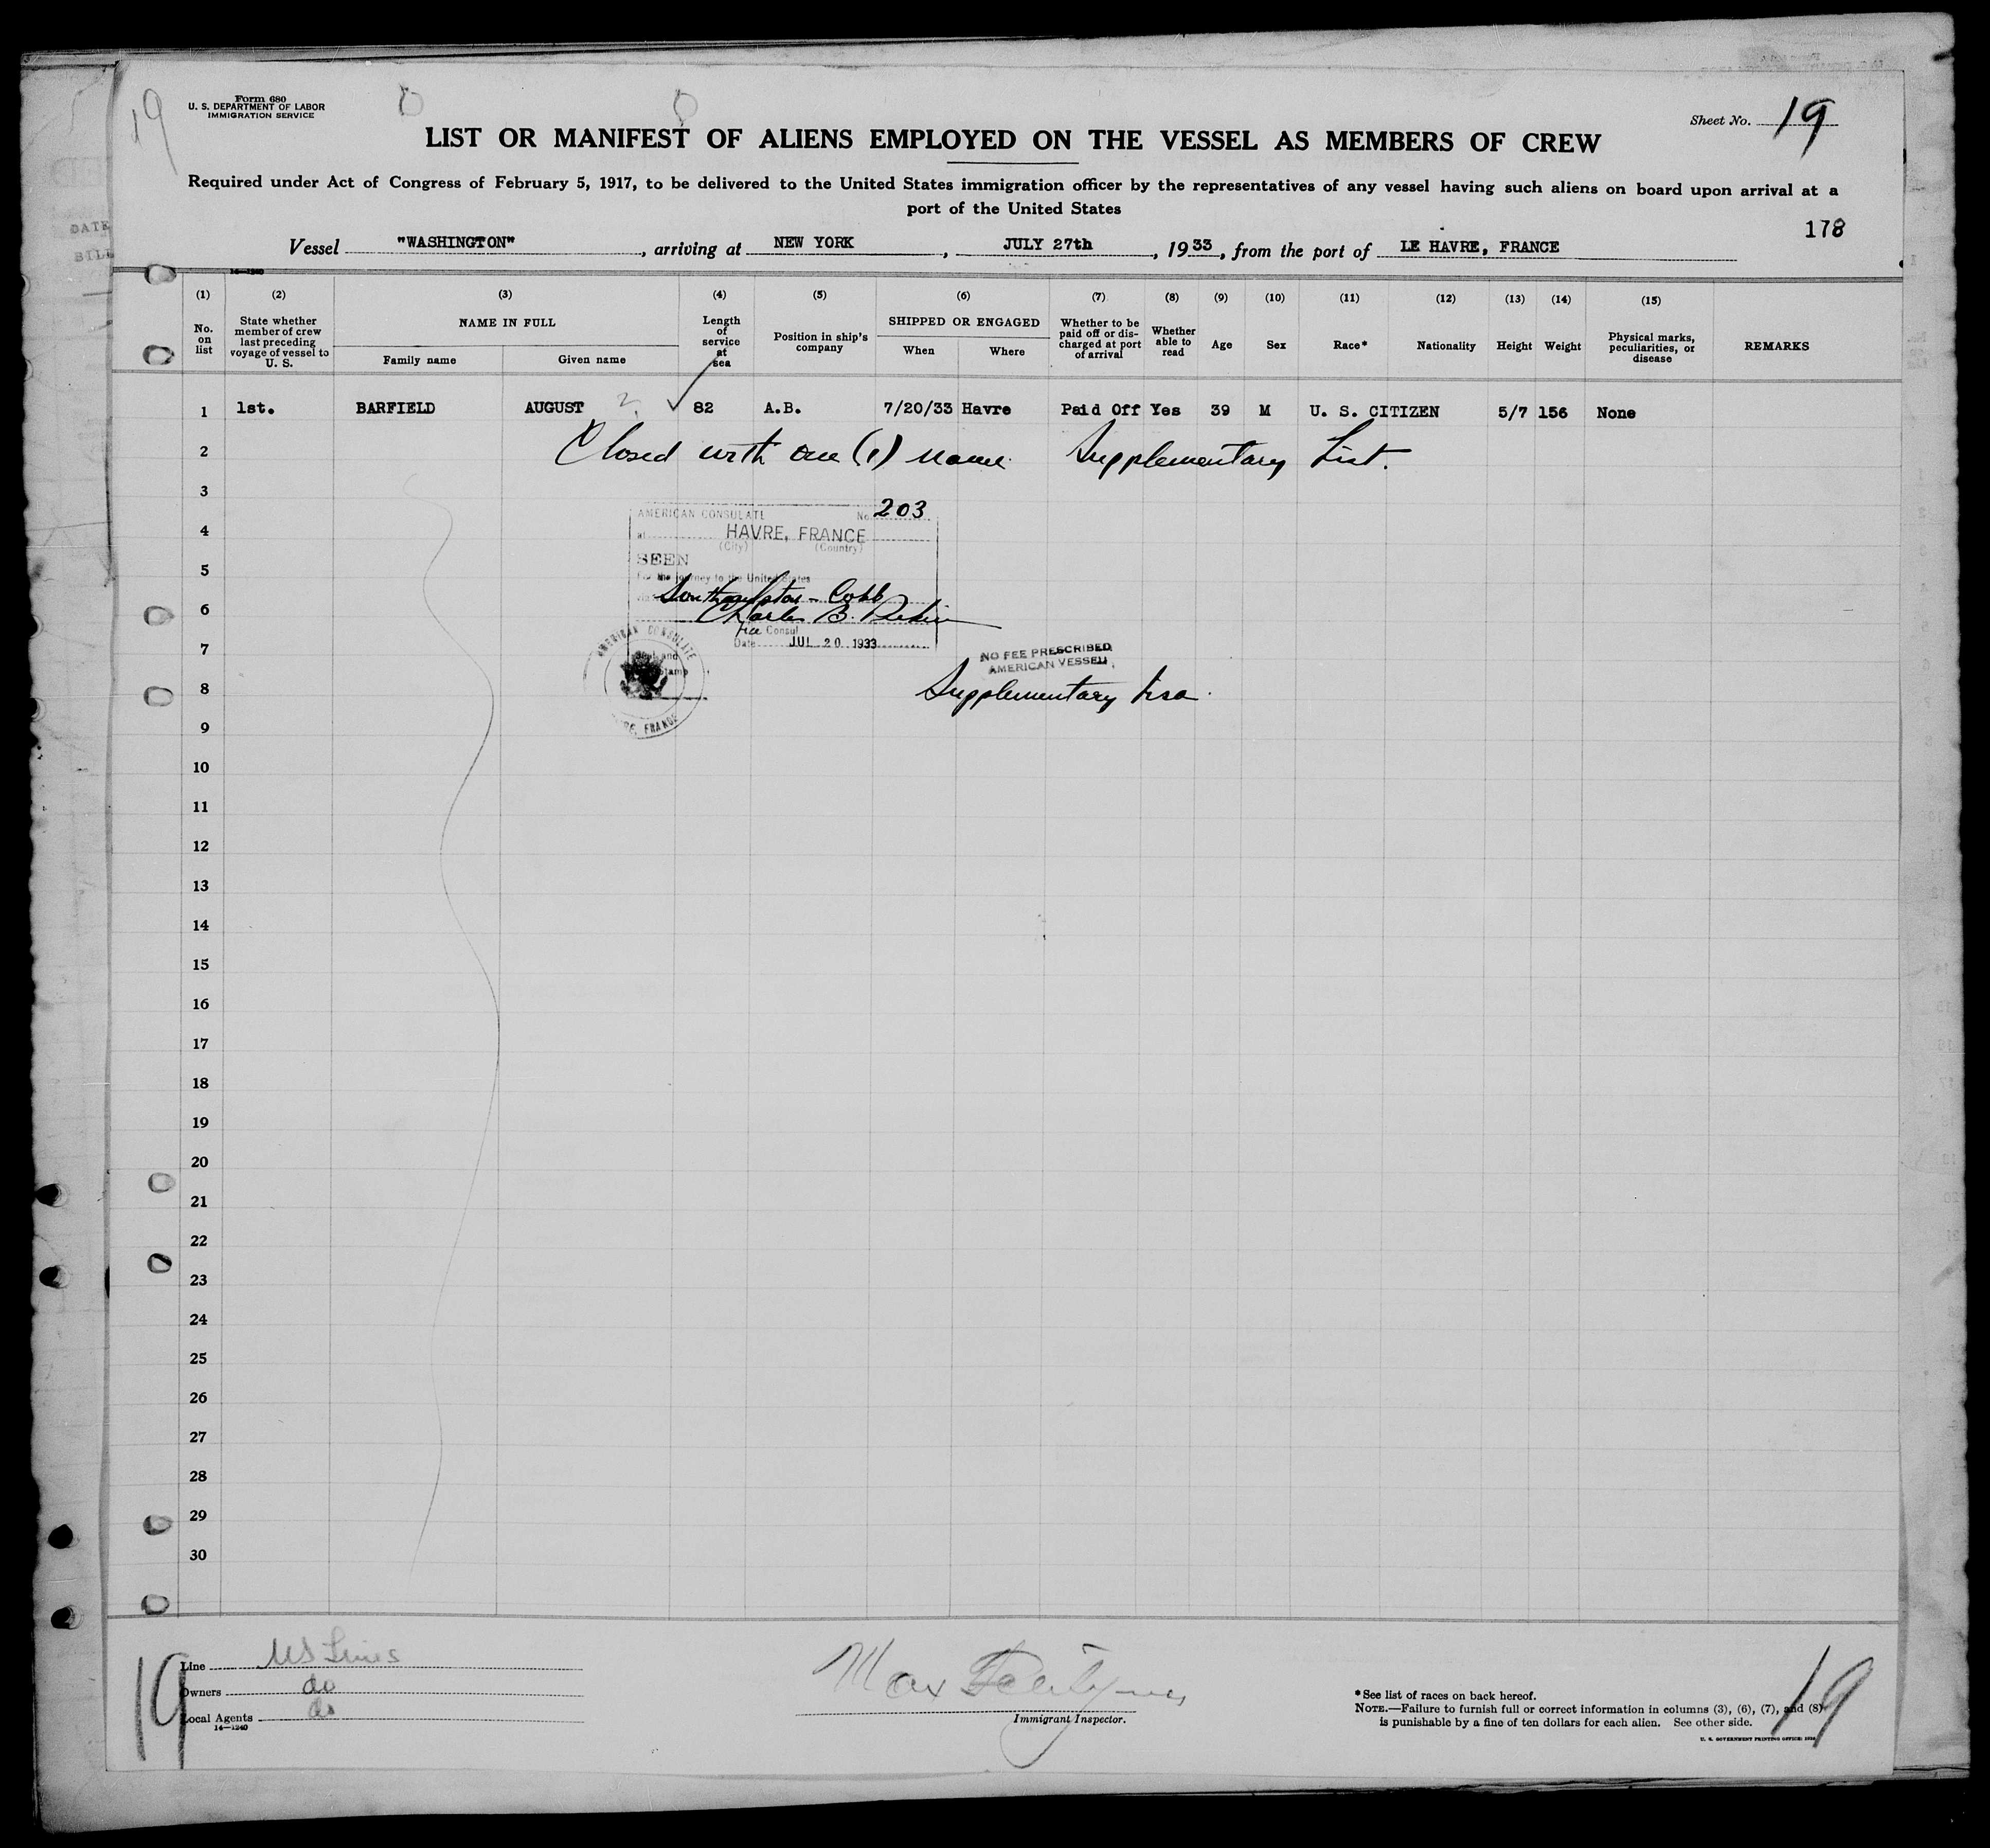 19
Form 680
U. S. DEPARTMENT OF LABOR
IMMIGRATION SERVICE
Sheet No. 19
LIST OR MANIFEST OF ALIENS EMPLOYED ON THE VESSEL AS MEMBERS OF CREW
Required under Act of Congress of February 5, 1917, to be delivered to the United States immigration officer by the representatives of any vessel having such aliens on board upon arrival at a
port of the United States
178
DATE
BILL
Vessel "WASHINGTON", arriving at NEW YORK, JULY 27th, 1933, from the port of LE HAVRE, FRANCE
14—1240
(1) (2) (3) (4) (5) (6) (7) (8) (9) (10) (11) (12) (13) (14) (15)
No. on list
State whether member of crew last preceding voyage of vessel to U. S.
NAME IN FULL
Family name
Given name
Length of service at sea
Position in ship's company
SHIPPED OR ENGAGED
When
Where
Whether to be paid off or discharged at port of arrival
Whether able to read
Age
Sex
Race*
Nationality
Height
Weight
Physical marks, peculiarities, or disease
REMARKS
1 1st. BARFIELD AUGUST 2. ✓ 82 A.B. 7/20/33 Havre Paid Off Yes 39 M U. S. CITIZEN 5/7 156 None
2 Closed with one (1) name Supplementary List.
3
AMERICAN CONSULATE No. 203
4
at HAVRE, FRANCE
(City) (Country)
5
SEEN
For the journey to the United States
Southampton - Cobh
6
Charles B.
Vice Consul
Date JUL 20 1933
7
AMERICAN CONSULATE
FRANCE
NO FEE PRESCRIBED
AMERICAN VESSEL
8
Supplementary visa.
9
10
11
12
13
14
15
16
17
18
19
20
21
22
23
24
25
26
27
28
29
30
19
Line US Lines
Owners do
Local Agents do
14—1240
Max
Immigrant Inspector.
*See list of races on back hereof.
NOTE.—Failure to furnish full or correct information in columns (3), (6), (7), and (8)
is punishable by a fine of ten dollars for each alien. See other side.
U. S. GOVERNMENT PRINTING OFFICE:
19